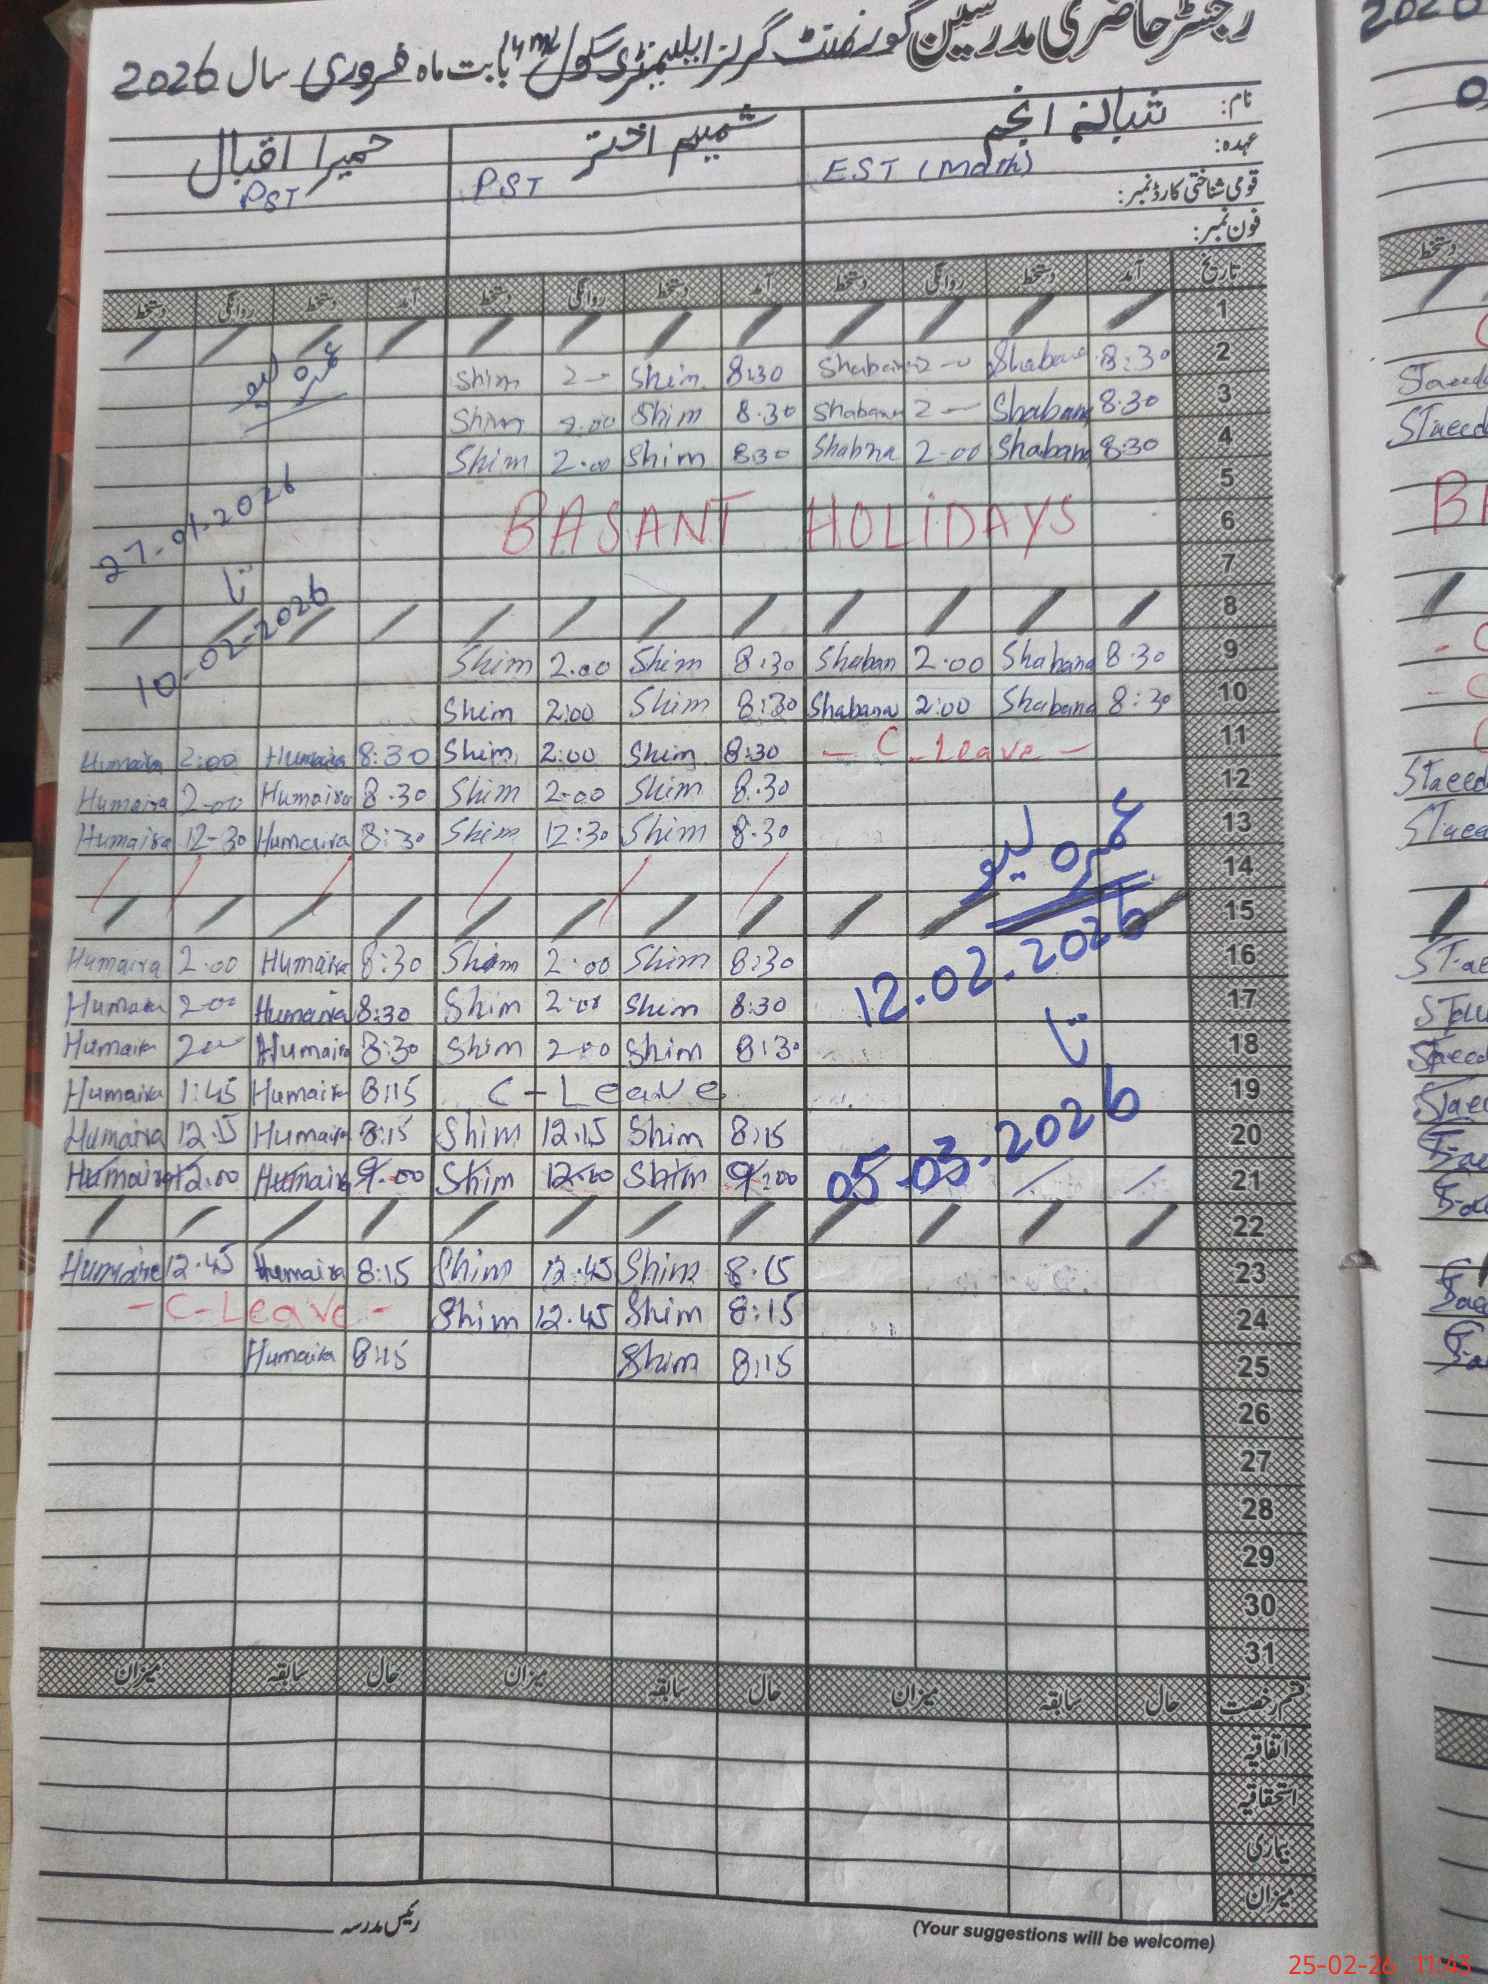 رجسٹر حاضری مدرسین گورنمنٹ گرلز ایلیمنٹری سکول بابت ماہ فروری سال 2026
نام: شبانہ انجم شمیم اختر حمیرا اقبال
عہدہ: EST (Math) PST PST
قومی شناختی کارڈ نمبر:
فون نمبر:
تاریخ آمد دستخط روانگی دستخط آمد دستخط روانگی دستخط آمد دستخط روانگی دستخط
1
2 8:30 Shabana 2- Shabana 8:30 Shim 2- Shim عمرہ لیو
3 8.30 Shabana 2- Shabana 8.30 Shim 2.00 Shim
4 8:30 Shabana 2-00 Shabna 830 Shim 2.00 Shim
5 27-01-2026
6 BASANT HOLIDAYS
7 تا
8 10-02-2026
9 8.30 Shabana 2.00 Shaban 8:30 Shim 2.00 Shim
10 8:30 Shabana 2:00 Shabana 8:30 Shim 2:00 Shim
11 - C-Leave - 8:30 Shim 2:00 Shim 8:30 Humaira 2:00 Humaira
12 8.30 Shim 2-00 Shim 8.30 Humaira 2-00 Humaira
13 عمرہ لیو 8.30 Shim 12:30 Shim 8:30 Humaira 12-30 Humaira
14
15
16 12.02.2026 8:30 Shim 2:00 Shim 8:30 Humaira 2.00 Humaira
17 تا 8:30 Shim 2:00 Shim 8:30 Humaira 2-00 Humaira
18 8:30 Shim 2-00 Shim 8:30 Humaira 2- Humaira
19 C-Leave 8:15 Humaira 1:45 Humaira
20 05-03-2026 8:15 Shim 12:15 Shim 8:15 Humaira 12.15 Humaira
21 9:00 Shim 12:00 Shim 9.00 Humaira 12.00 Humaira
22
23 8.15 Shim 12.45 Shim 8:15 Humaira 12.45 Humaira
24 8:15 Shim 12.45 Shim - C-Leave -
25 8:15 Shim 8:15 Humaira
26
27
28
29
30
31
قسم رخصت حال سابقہ میزان حال سابقہ میزان حال سابقہ میزان
اتفاقیہ
استحقاقیہ
بیماری
میزان
رئیس مدرسہ
(Your suggestions will be welcome)
25-02-26 11:43